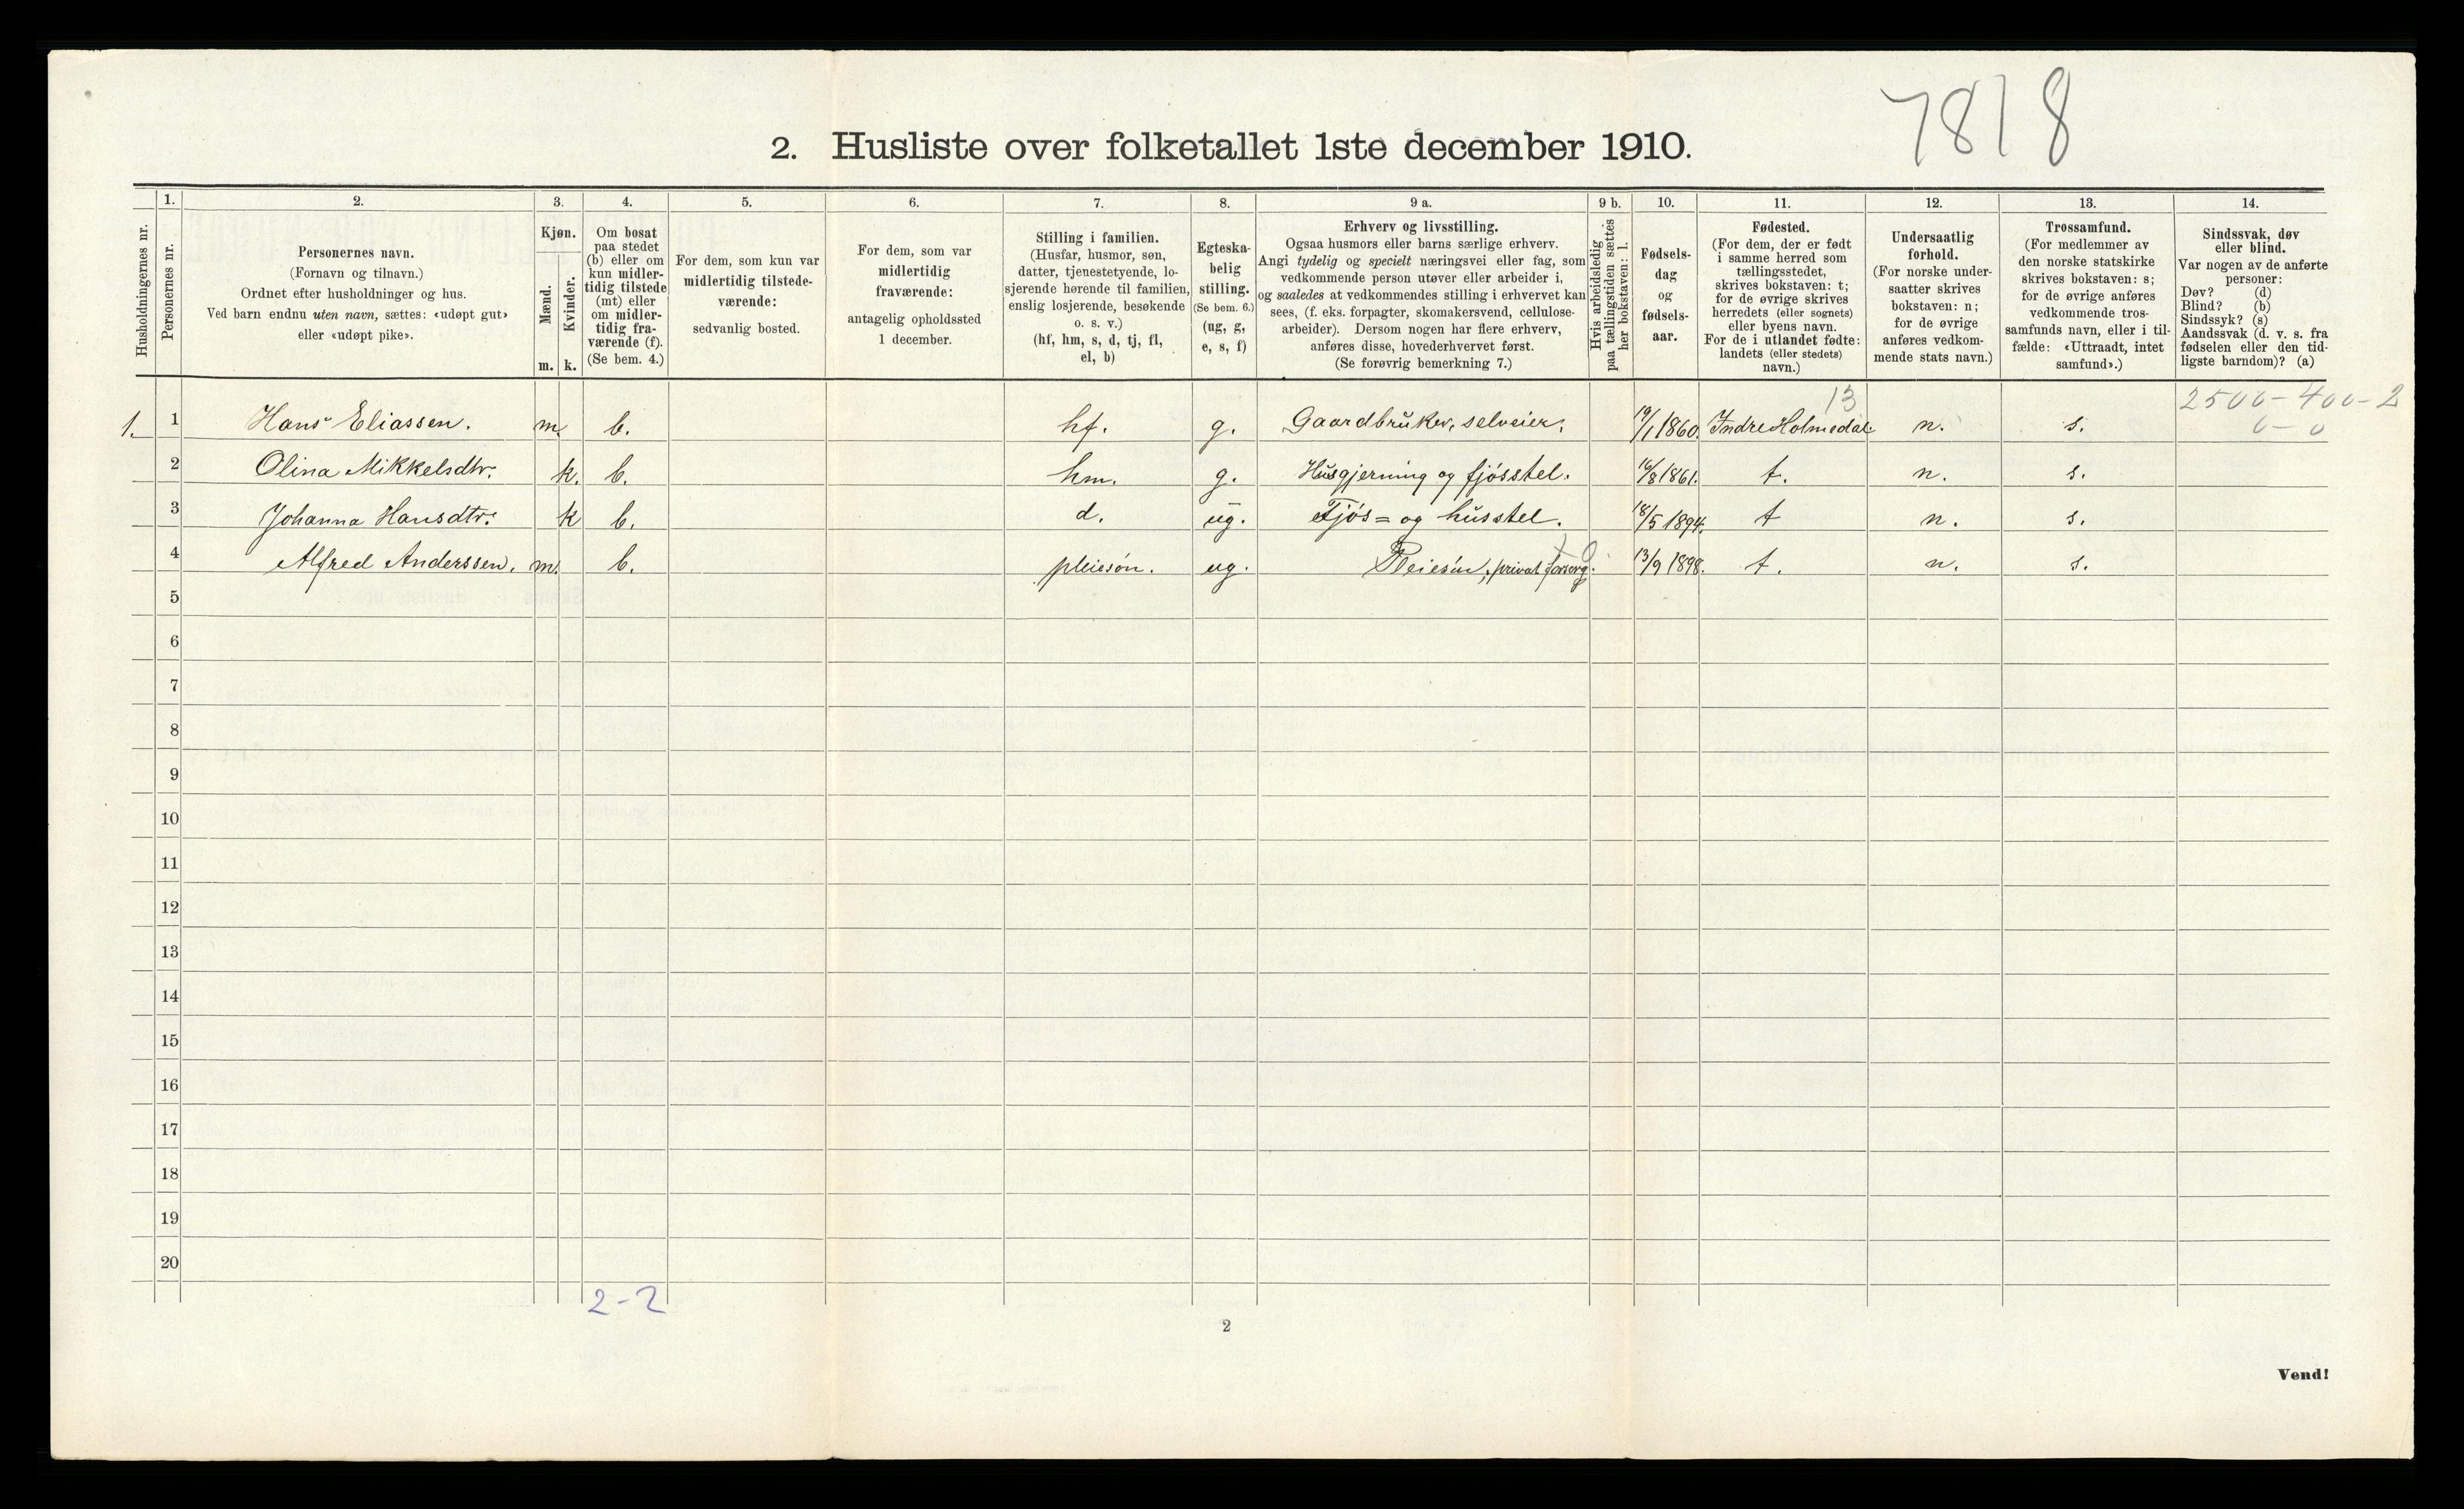 7818
2. Husliste over folketallet 1ste december 1910.
Husholdningernes nr.
1.
Personernes nr.
2.
Personernes navn.
(Fornavn og tilnavn.)
Ordnet efter husholdninger og hus.
Ved barn endnu uten navn, sættes: «udøpt gut»
eller «udøpt pike».
3.
Kjøn.
Mænd.
m.
Kvinder.
k.
4.
Om bosat
paa stedet
(b) eller om
kun midler-
tidig tilstede
(mt) eller
om midler-
tidig fra-
værende (f).
(Se bem. 4.)
5.
For dem, som kun var
midlertidig tilstede-
værende:
sedvanlig bosted.
6.
For dem, som var
midlertidig
fraværende:
antagelig opholdssted
1 december.
7.
Stilling i familien.
(Husfar, husmor, søn,
datter, tjenestetyende, lo-
sjerende hørende til familien,
enslig losjerende, besøkende
o. s. v.)
(hf, hm, s, d, tj, fl,
el, b)
8.
Egteska-
belig
stilling.
(Se bem. 6.)
(ug, g,
e, s, f)
9 a.
Erhverv og livsstilling.
Ogsaa husmors eller barns særlige erhverv.
Angi tydelig og specielt næringsvei eller fag, som
vedkommende person utøver eller arbeider i,
og saaledes at vedkommendes stilling i erhvervet kan
sees, (f. eks. forpagter, skomakersvend, cellulose-
arbeider). Dersom nogen har flere erhverv,
anføres disse, hovederhvervet først.
(Se forøvrig bemerkning 7.)
9 b.
Hvis arbeidsledig
paa tællingstiden sættes
her bokstaven: l.
10.
Fødsels-
dag
og
fødsels-
aar.
11.
Fødested.
(For dem, der er født
i samme herred som
tællingsstedet,
skrives bokstaven: t;
for de øvrige skrives
herredets (eller sognets)
eller byens navn.
For de i utlandet fødte:
landets (eller stedets)
navn.)
12.
Undersaatlig
forhold.
(For norske under-
saatter skrives
bokstaven: n;
for de øvrige
anføres vedkom-
mende stats navn.)
13.
Trossamfund.
(For medlemmer av
den norske statskirke
skrives bokstaven: s;
for de øvrige anføres
vedkommende tros-
samfunds navn, eller i til-
fælde: «Uttraadt, intet
samfund».)
14.
Sindssvak, døv
eller blind.
Var nogen av de anførte
personer:
Døv? (d)
Blind? (b)
Sindssyk? (s)
Aandssvak (d. v. s. fra
fødselen eller den tid-
ligste barndom)? (a)
13 2500-400-2
0-0
1. 1 Hans Eliassen. m. b. hf. g. Gaardbruker, selveier. 19/1 1860. Indre Holmedal n. s.
2 Olina Mikkelsdtr. k. b. hm. g. Husgjerning og fjøsstel. 16/8 1861. t. n. s.
3 Johanna Hansdtr. k b. d. ug. Fjøs= og husstel. 18/5 1894. t n. s.
4 Alfred Anderssen. m. b. pleiesøn. ug. Pleiesøn, privat forsørg. 13/9 1898. t. n. s.
5
6
7
8
9
10
11
12
13
14
15
16
17
18
19
20
2-2
2
Vend!